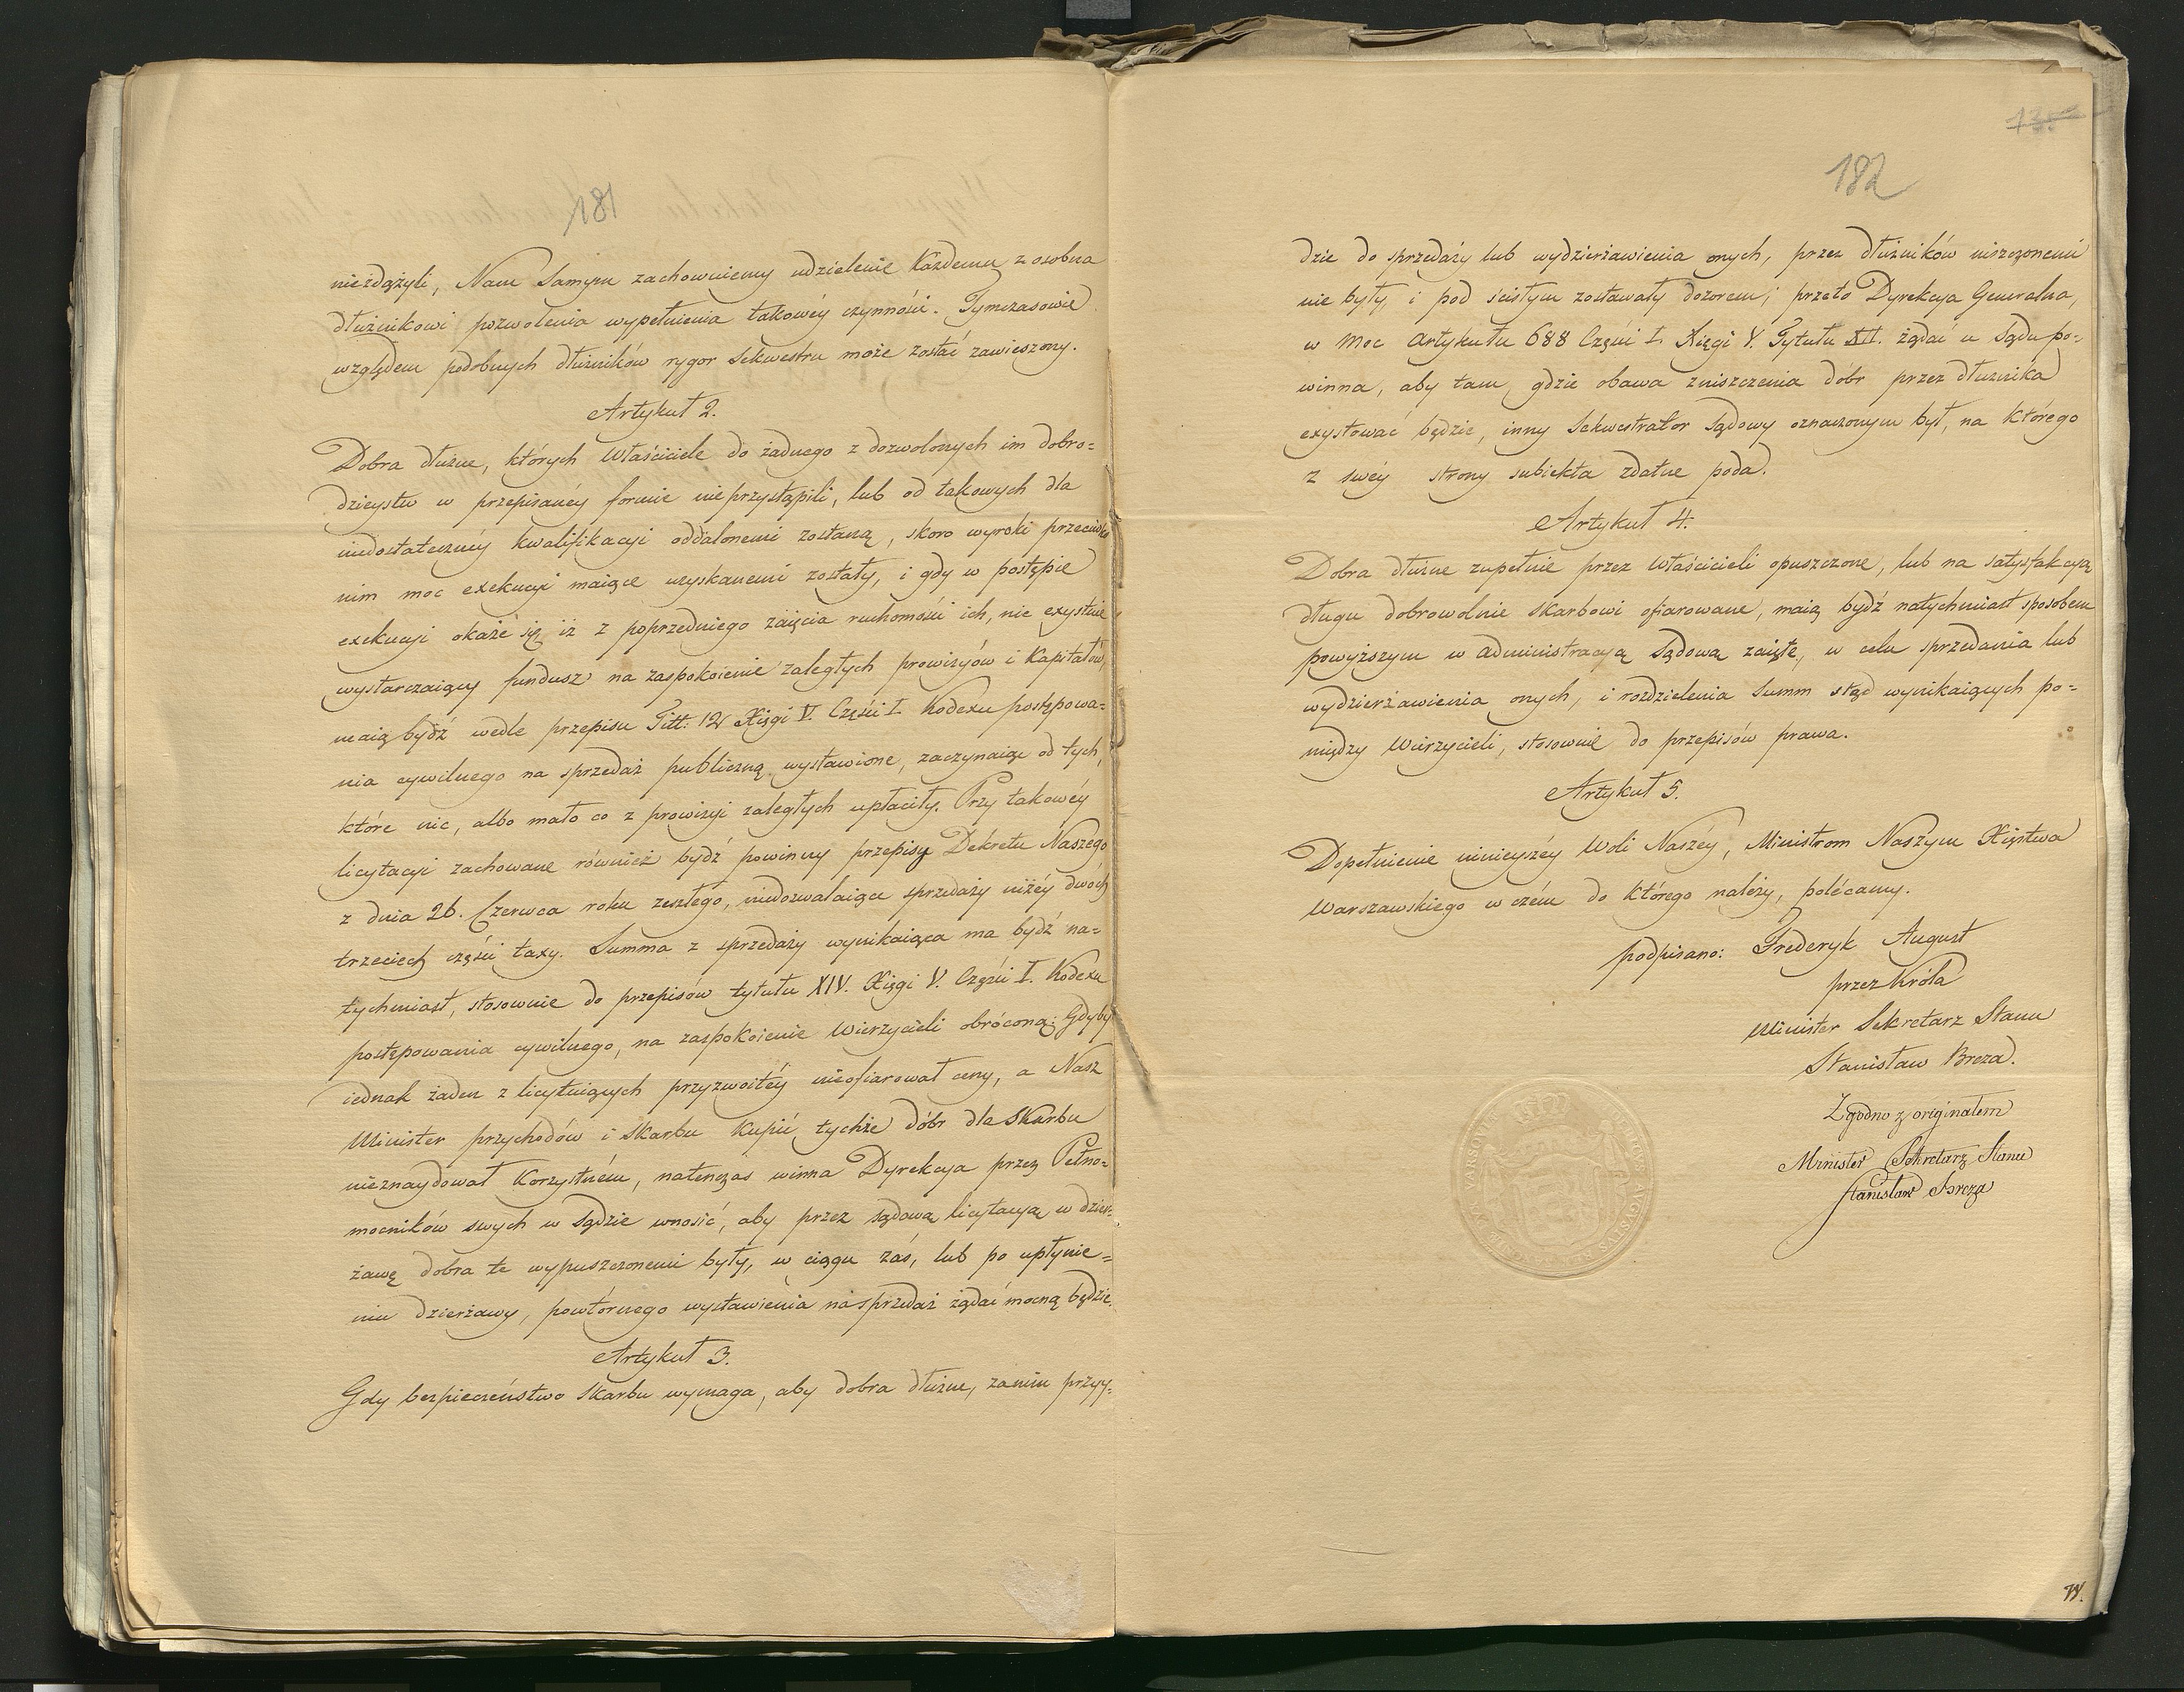 181
nieżdążyli, Nam Samym zachowuiemy udzielenie Każdemu z osobna
dłużnikowi pozwolenia wypełnienia takowéy czynności. Tymczasowie
względem podobnych dłużników rygor Sekwestru może zostać zawieszony.
Artykuł 2.
Dobra dłużne, których Właściciele do żadnego z dozwolonych im dobro=
dzieystw w przepisanéy formie nieprzystąpili, lub od takowych dla
niedostatecznéy kwalifikacyi oddalonemi zostaną, skoro wyroki przeciwko
nim moc exekucyi maiące uzyskanemi zostały, i gdy w postępie
exekucyi okaże się iż z poprzedniego zaięcia ruchomości ich, nie exystuie
wystarczaiący fundusz na zaspokoienie zaległych prowizyów i Kapitałów,
maią bydź wedle przepisu Titt: 12 Xięgi V. Części I. Kodexu postępowa=
nia cywilnego na sprzedaż publiczną wystawione, zaczynaiąc od tych,
które nic, albo mało co z prowizyi zaległych upłaciły. Przy takowéy
licytacyi zachowane również bydź powinny przepisy Dekretu Naszego
z dnia 26. Czerwca roku zeszłego, niedozwalaiące sprzedaży niżéy dwóch
trzeciech części taxy. Summa z sprzedaży wynikaiąca ma bydź na=
tychmiast, stosownie do przepisów tytułu XIV. Xięgi V. Części I. Kodexu
postępowania cywilnego, na zaspokoienie Wierzycieli obróconą; Gdyby
iednak żaden z licytuiących przyzwoitéy nieofiarował ceny, a Nasz
Minister przychodów i Skarbu Kupić tychże dóbr dla Skarbu
nieznaydował Korzystném, natenczas winna Dyrekcya przez Pełno=
mocników swych w Sądzie wnosić, aby przez sądową licytacyą w dzier=
żawę dobra te wypuszczonemi były, w ciągu zaś, lub po upłynie=
niu dzierżawy, powtórnego wystawienia na sprzedaż żądać mocną będzie.
Artykuł 3.
Gdy bezpieczeństwo Skarbu wymaga, aby dobra dłużne, zanim przyy=
182
dzie do sprzedaży lub wydzierżawienia onych, przez dłużników niszczonemi
nie były, i pod ścisłym zostawały dozorem; przeto Dyrekcya Generalna,
w Moc Artykułu 688 Części I. Xięgi V. Tytułu XII. żądać u Sądu po=
winna, aby tam, gdzie obawa zniszczenia dóbr przez dłużnika
exystować będzie, inny Sekwestrator Sądowy oznaczonym był, na którego
z swéy strony subiekta zdatne poda.
Artykuł 4.
Dobra dłużne zupełnie przez Właścicieli opuszczone, lub na satysfakcyą
długu dobrowolnie Skarbowi ofiarowane, maią bydź natychmiast sposobem
powyższym w administracyą Sądową zaięte, w celu sprzedania lub
wydzierżawienia onych, i rozdzielenia Summ stąd wynikaiących po=
między Wierzycieli, stosownie do przepisów prawa.
Artykuł 5.
Dopełnienie ninieyszéy Woli Naszéy, Ministrom Naszym Xięstwa
Warszawskiego w czém do którego należy, polécamy.
podpisano: Frederyk August
przez Króla
Minister Sekretarz Stanu
Stanisław Breza.
Zgodno z originałem
Minister Sekretarz Stanu
Stanisław Breza